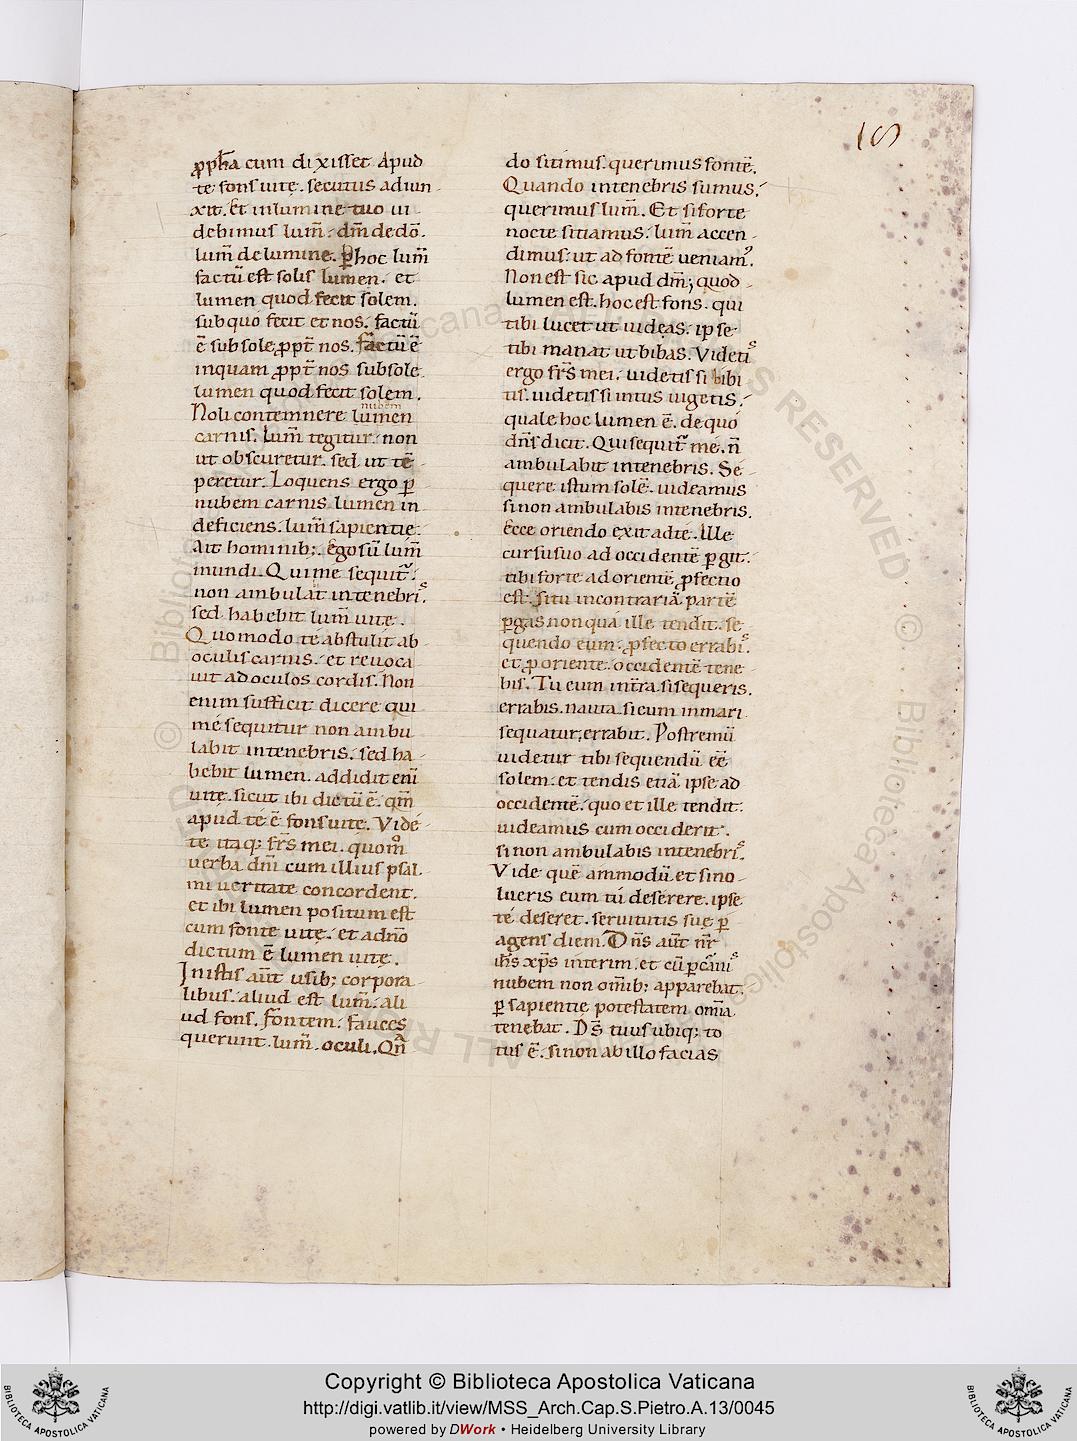 19
ꝓph̄a cum dixisset Apud
te fons uitę. secutus adiun
xit. Et in lumine tuo ui
debimus lum̄. dm̄ de dō.
lum̄ de lumine. ꝑ hoc lum̄
factū est solis lumen. et
lumen quod fecit solem.
sub quo fecit et nos. factū
ē sub sole ꝓpt̄ nos. factū ē
inquam ꝓpt̄ nos sub sole
lumen quod fecit solem.
Noli contemnere lumen
nubem
carnis. lum̄ tegitur. non
ut obscuretur. sed ut tē
peretur. Loquens ergo ꝑ
nubem carnis lumen in
deficiens. lum̄ sapientię.
Ait hominib;. Ego sū lum̄
mundi. Qui me sequit᷑.
non ambulat in tenebris.
sed habebit lum̄ uitę.
Quomodo te abstulit ab
oculis carnis. et reuoca
uit ad oculos cordis. Non
enim sufficit dicere qui
me sequitur non ambu
labit in tenebris. sed ha
bebit lumen. addidit eni
uitę. sicut ibi dictū ē. qm̄
apud te ē fons uitę. Vide
te itaq; frs̄ mei. quom̊
uerba dn̄i cum illius psal
mi ueritate concordent.
et ibi lumen positum est
cum fonte uitę. et a dn̄o
dictum ē lumen uitę.
In istis aūt usib; corpora
libus. aliud est lum̄. ali
ud fons. fontem. fauces
querunt. lum̄. oculi. Qn̄
do sitimus. querimus fontē.
Quando in tenebris sumus.
querimus lum̄. Et si forte
nocte sitiamus. lum̄ accen
dimus. ut ad fontē ueniam᷒.
Non est sic apud dm̄; quod
lumen est. hoc est fons. qui
tibi lucet ut uideas. ipse
tibi manat ut bibas. Videtis
ergo frs̄ mei. uidetis si bibi
tis. uidetis si intus uigetis.
quale hoc lumen ē. de quo
dn̄s dicit. Qui sequit᷑ me. n̄
ambulabit in tenebris. Se
quere istum solē. uideamus
si non ambulabis in tenebris.
Ecce oriendo exit ad te. Ille
cursu suo ad occidentē ꝑgit.
tibi forte ad orientē ꝓfectio
est. si tu in contrariā partē
ꝑgas non qua ille tendit. se
quendo eum. ꝓfecto errabis.
et ꝓ oriente. occidentē tene
bis. Tu eum in tr̄a si sequeris.
errabis. nauta si eum in mari
sequatur; errabit. Postremū
uidetur tibi sequendū eē
solem. et tendis etiā ipse ad
occidentē. quo et ille tendit.
uideamus cum occiderit.
si non ambulabis in tenebris.
Vide quē ammodū et si no
lueris eum tu deserere. ipse
te deseret. seruitutis suę ꝑ
agens diem. Dn̄s aūt nr̄
ihs̄ xp̄s interim. et cū ꝑ carnis
nubem non om̄ib; apparebat.
ꝑ sapientię potestatem om̄ia
tenebat. Ds̄ tuus ubiq; to
tus ē. si non ab illo facias
Copyright © Biblioteca Apostolica Vaticana
http://digi.vatlib.it/view/MSS_Arch.Cap.S.Pietro.A.13/0045
powered by DWork • Heidelberg University Library
BIBLIOTECA APOSTOLICA VATICANA
BIBLIOTECA APOSTOLICA VATICANA